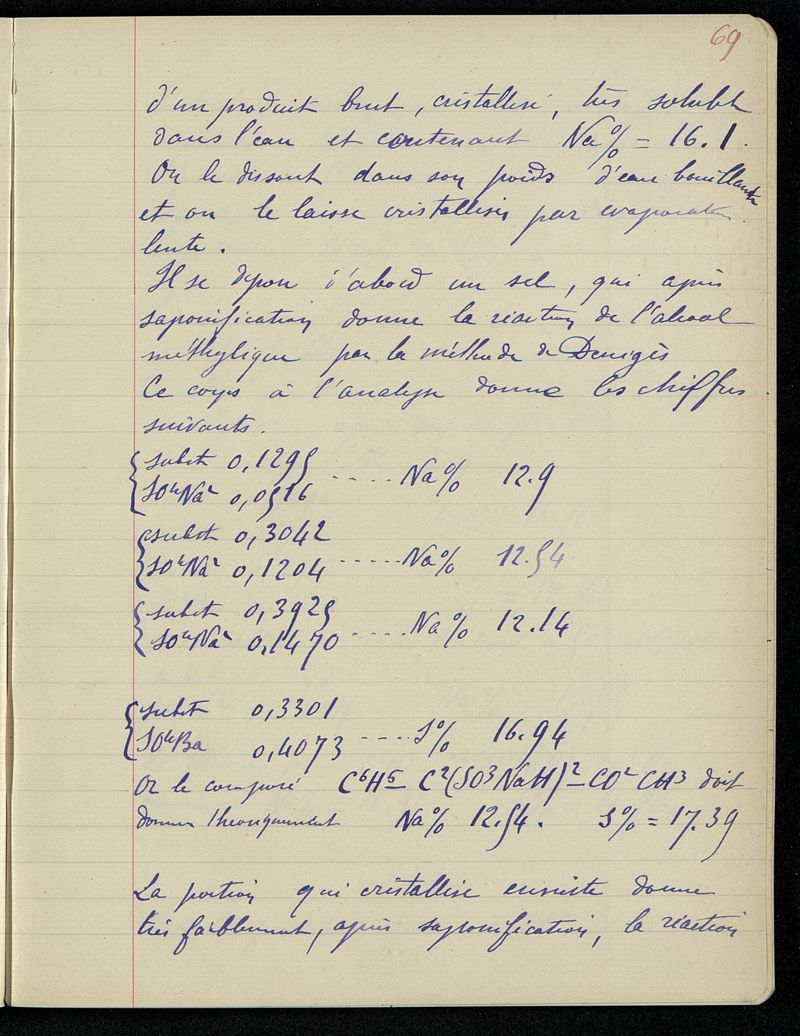 69
d'un produit brut, cristallisé, très soluble
dans l'eau et contenant Na% = 16.1.
On le dissout dans son poids d'eau bouillante
et on le laisse cristalliser par evaporation
lente.
Il se dépose d'abord un sel, qui après
saponification donne la réaction de l'alcool
méthylique par la méthode de Denigès
Ce corps à l'analyse donne les chiffres
suivants.
{ subst 0,1295
{ SO⁴Na² 0,0516 ..... Na% 12.9
{ subst 0,3042
{ SO⁴Na² 0,1204 ..... Na% 12.54
{ subst 0,3925
{ SO⁴Na² 0,1470 ..... Na% 12.14
{ subst 0,3301
{ SO⁴Ba 0,4073 .... S% 16.94
Or le composé C⁶H⁵–C²(SO³NaH)²–CO²CH³ doit
donner théoriquement Na% 12.54. S% = 17.39
La portion qui cristallise ensuite donne
très faiblement, après saponification, la réaction